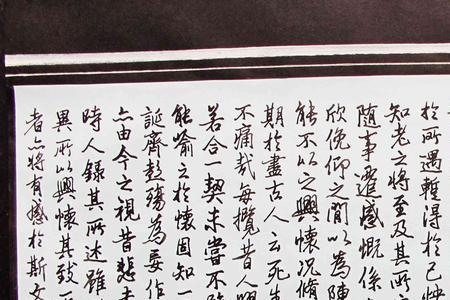 於所遇輒得於己快
知老之將至及其所
隨事遷感慨係
欣俛仰之間以為陳
能不以之興懷況脩
期於盡古人云死生
不痛哉每攬昔人興
若合一契未嘗不臨
能喻之於懷固知一
誕齊彭殤為妄作
亦由今之視昔悲夫
時人錄其所述雖
異所以興懷其致一
者亦將有感於斯文